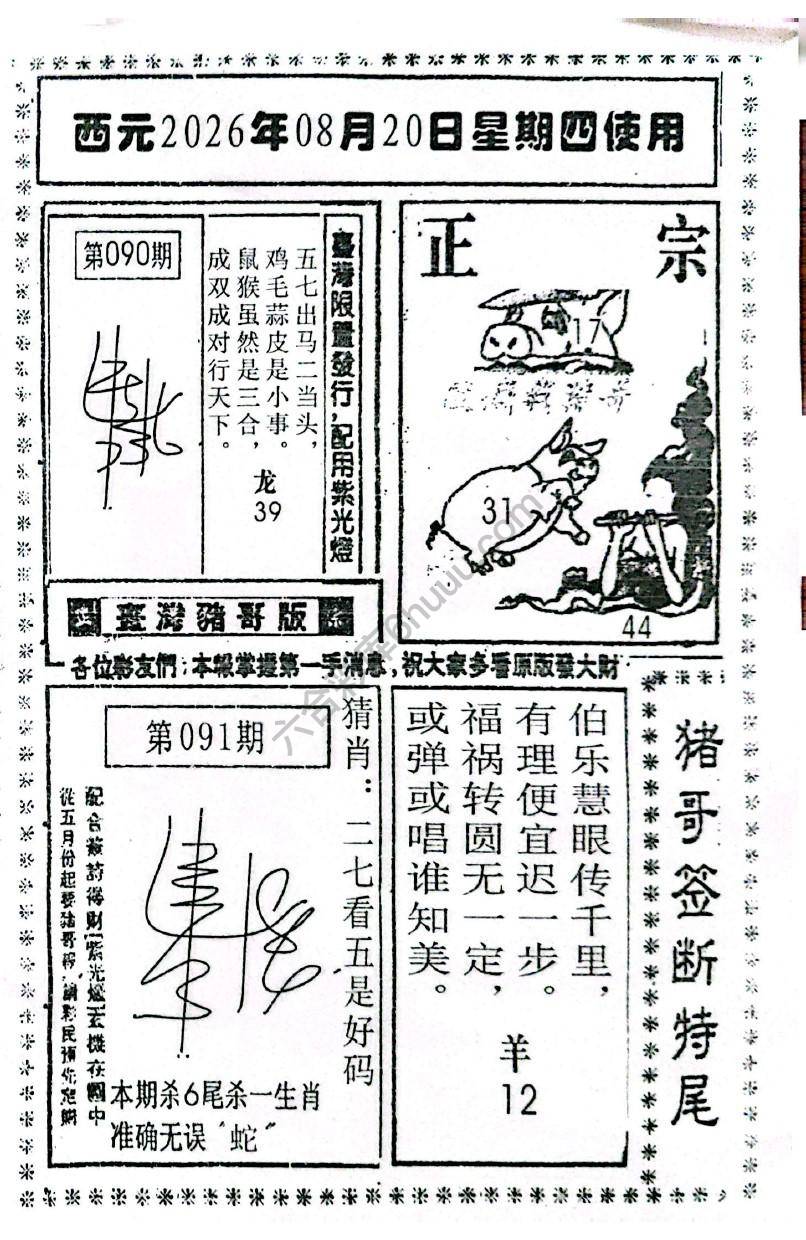 西元2026年08月20日星期四使用
第090期
臺灣限量發行，配用紫光燈
五七出马二当头，
鸡毛蒜皮是小事。
鼠猴虽然是三合，
成双成对行天下。
龙
39
正宗
17
31
44
臺灣豬哥版
各位彩友們：本報掌握第一手消息，祝大家多看原版發大財
第091期
猜肖：二七看五是好码
本期杀6尾杀一生肖
准确无误“蛇”
伯乐慧眼传千里，
有理便宜迟一步。
福祸转圆无一定，
或弹或唱谁知美。
羊
12
猪哥签断特尾
六合彩库6huuu.com